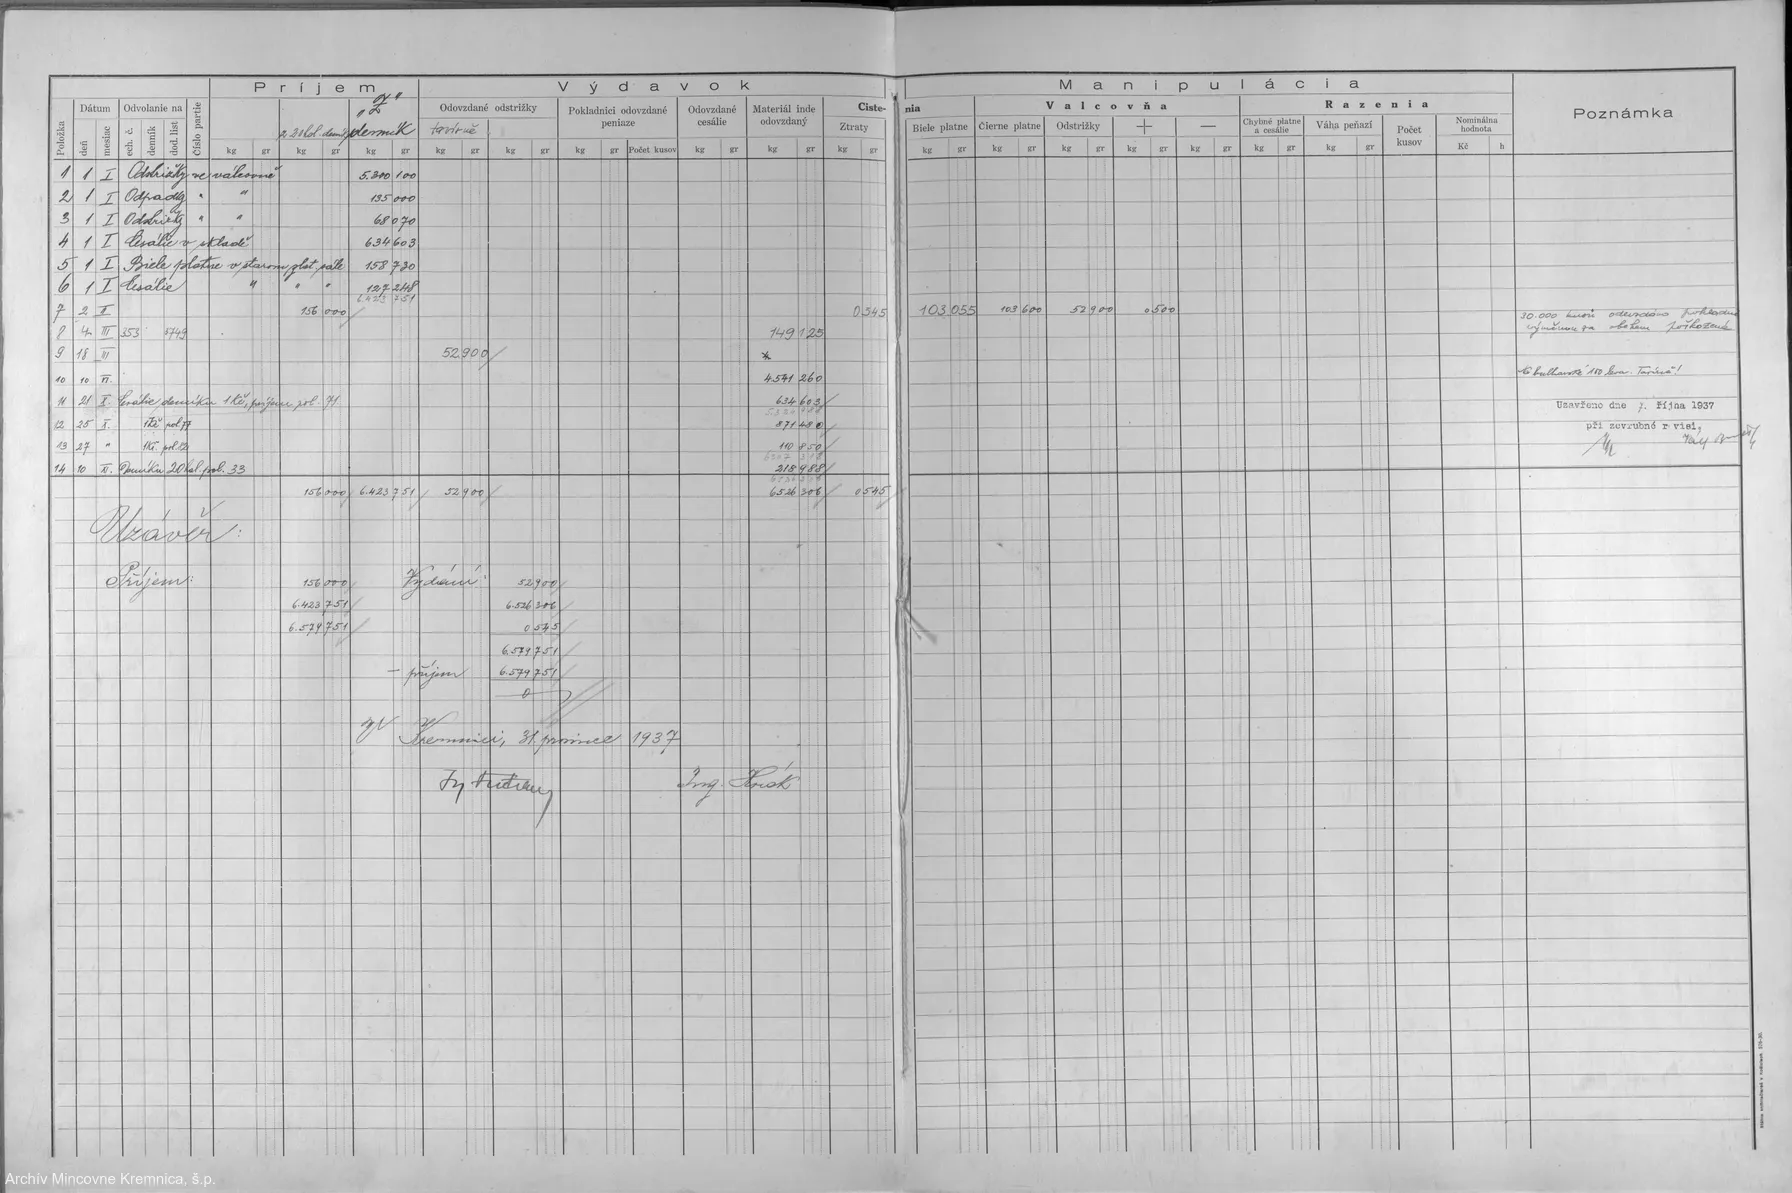 Príjem Výdavok Manipulácia
Položka Dátum Odvolanie na Číslo partie Odovzdané odstrižky Pokladnici odovzdané peniaze Odovzdané cesálie Materiál inde odovzdaný Ciste- nia Valcovňa Razenia Poznámka
deň mesiac ech. č. denník dod. list denník Ztraty Biele platne Čierne platne Odstrižky + — Chybné platne a cesálie Váha peňazí Počet kusov Nominálna hodnota
kg gr kg gr kg gr kg gr kg gr kg gr Počet kusov kg gr kg gr kg gr kg gr kg gr kg gr kg gr kg gr kg gr kg gr Kč h
1 1 I Odstrižky ve válcovně 5.300 100
2 1 I Odpadky " " 135 000
3 1 I Odstrižky " " 68 070
4 1 I Cesálie v skladě 634 603
5 1 I Biele platne v starom plat. sále 158 730
6 1 I Cesálie " " " 127 248
6.423 751
7 2 II 156 000 0 545 103 055 103 600 52 900 0 500
30.000 kusů odevzdáno pokladně
výměnou za oběhem poškozené
8 4 III 353 5749 149 125
9 18 III 52 900
10 10 VI. 4.541 260
11 21 X. Cesálie denníku 1 Kč, príjem pol. 71 634 603
12 25 X. 1 Kč pol 77 871 480
13 27 " 1 Kč. pol. 110 850
14 10 XI. Denníku 20 hal. pol. 33 218 988
Uzavřeno dne 7. října 1937
při zevrubné revisi,
156 000 6.423 751 52 900 6526 306 0 545
Uzávěr:
Příjem: 156 000 Vydání: 52 900
6.423 751 6.526 306
6.579 751 0 545
6.579 751
— příjem 6.579 751
0
V Kremnici, 31. prosince 1937
Ing.
Archív Mincovne Kremnica, š.p.